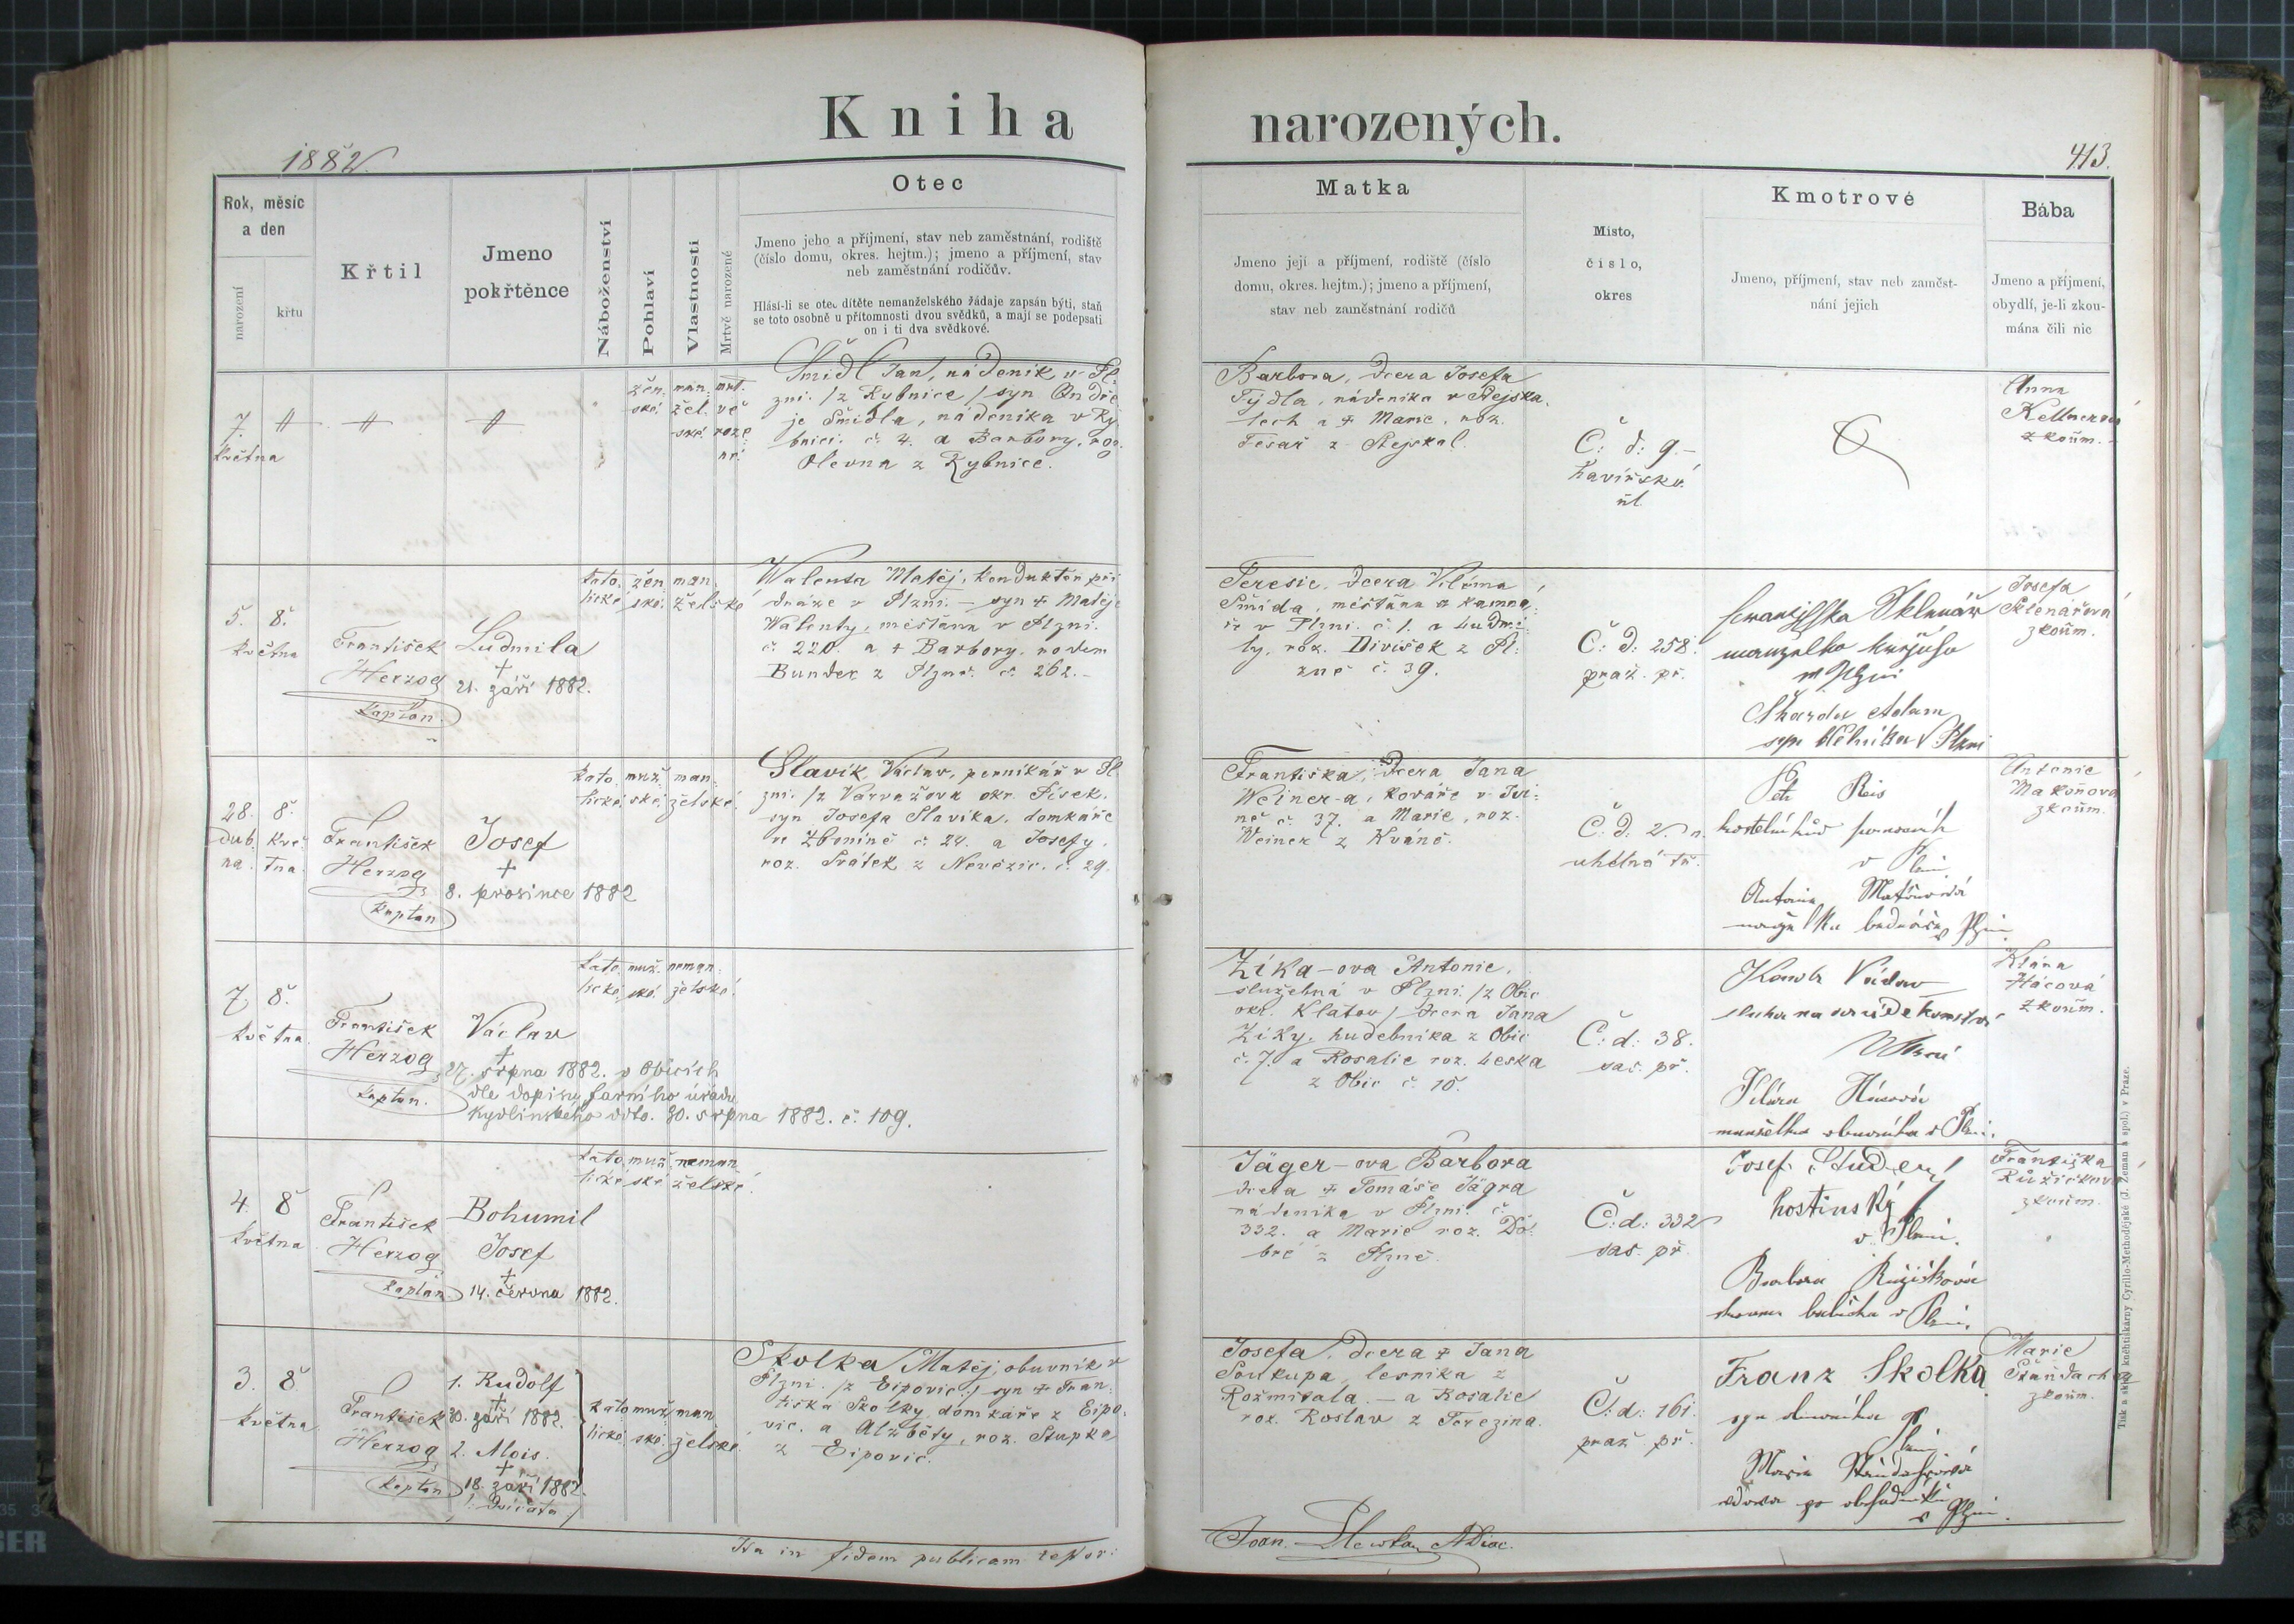 Kniha
narozených.
1882
413.
Rok, měsíc
a den
narození
křtu
Křtil
Jmeno
pokřtěnce
Náboženství
Pohlaví
Vlastnosti
Mrtvě narozené
Otec
Jmeno jeho a příjmení, stav neb zaměstnání, rodiště
(číslo domu, okres. hejtm.); jmeno a příjmení, stav
neb zaměstnání rodičův.
Hlásí-li se otec dítěte nemanželského žádaje zapsán býti, staň
se toto osobně u přítomnosti dvou svědků, a mají se podepsati
on i ti dva svědkové.
Matka
Jmeno její a příjmení, rodiště (číslo
domu, okres. hejtm.); jmeno a příjmení,
stav neb zaměstnání rodičů
Místo,
číslo,
okres
Kmotrové
Jmeno, příjmení, stav neb zaměst-
nání jejich
Bába
Jmeno a příjmení,
obydlí, je-li zkou-
mána čili nic
7.
května
žen-
ské
man-
žel-
ské
mrt-
vě
roze-
né
Šmidl Jan, nádeník v Pl-
zni. /z Rybnice/ syn Ondře-
je Šmidla, nádeníka v Ry-
bnici. č. 4. a Barbory, roz.
Olevna z Rybnice.
Barbora, dcera Josefa
Týdla, nádeníka v Stejska-
lech a † Marie, roz.
Tesař z Stejskal.
Č: d: 9.
havířská
úl.
Anna
Kellnerová
zkoum.
5. 8.
května
František
Herzog
kaplan.
Ludmila
†
21. září 1882.
kato-
lické
žen-
ské
man-
želské
Walenta Matěj, konduktér při
dráze v Plzni. – syn † Matěje
Walenty, měšťana v Plzni.
č. 220. a † Barbory, rodem
Bunder z Plzně. č. 262.
Teresie, dcera Viléma
Šmída, měšťana a kamna-
ře v Plzni. č. 1. a Ludmi-
ly, roz. Divišek z Pl-
zně č. 39.
Č: d: 258.
praž. př.
manželka
v Plzni
Adam
v Plzni
Josefa
Sklenařová
zkoum.
28. 8.
dub- kvě-
na. tna.
František
Herzog
kaplan
Josef
†
8. prosince 1882
kato-
lické
muž-
ské
man-
želské
Slavík Václav, perníkář v Pl-
zni. /z Varvažova okr. Písek,
syn Josefa Slavíka, domkáře
ve Zbonině č. 24. a Josefy,
roz. Srátek z Nevězic. č. 29.
Františka, dcera Jana
Weiner-a, kováře v
č. 37. a Marie, roz.
Weiner z
Č: d: 2.
uhelná tř.
Petr Reis
v Plzni
Antonie Makoňová
Antonie
Makoňová
zkoum.
7. 8.
května
František
Herzog
kaplan.
Václav
†
27. srpna 1882. v Obicích
dle dopisu farního úřadu
Kydlinského ddto. 30. srpna 1882. č. 109.
kato-
lické
muž-
ské
neman-
želské
Zíka-ova Antonie,
služebná v Plzni /z Obic
okr. Klatov/ dcera Jana
Zíky, hudebníka z Obic
č. 7. a Rosalie roz. Leska
z Obic č. 10.
Č: d: 38.
sas. př.
Václav
Klára Hácová
manželka obuvníka v Plzni.
Klára
Hácová
zkoum.
4. 8
května
František
Herzog
kaplan
Bohumil
Josef
†
14. června 1882.
kato-
lické
muž-
ské
neman-
želské
Jäger-ova Barbora
dcera † Tomáše Jägra
nádeníka v Plzni. č.
332. a Marie roz. Do-
bré z Plzně.
Č: d: 332
sas. př.
Josef
hostinský
v Plzni.
Barbora Růžičková
v Plzni.
Františka
Růžičkova
zkoum.
3. 8
května
František
Herzog
kaplan
1. Rudolf
†
30. září 1882.
2. Alois.
†
18. září 1882.
/: dvíčata :/
kato-
lické
muž-
ské
man-
želské
Skolka Matěj, obuvník v
Plzni. /z Eipovic/ syn † Fran-
tiška Skolky domkáře z Eipo-
vic. a Alžběty, roz. Stupka
z Eipovic.
Josefa, dcera † Jana
Soukupa, lesníka z
Rožmitala. – a Rosalie
roz. Roslav z Terezina.
Č: d: 161.
praž. př.
Franz Skolka
Plzni
Marie
vdova po
v Plzni.
Marie
zkoum.
Ita in fidem publicam refor:
Joan.
Tisk a sklad knihtiskárny Cyrillo-Methodějské (J. Zeman a spol.) v Praze.